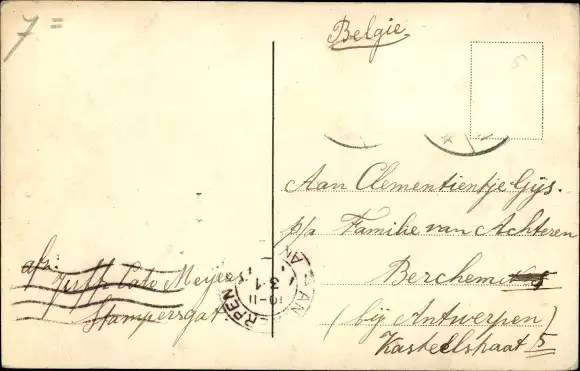 7=
Belgie
5
Aan Clementientje Gijs.
p/a Familie van Achteren
Berchem
(bij Antwerpen)
Kasteelstraat 5
afz.
Cato Meyers
Stampersgat
RPEN
10-11
31
AN